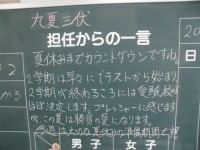 九夏三伏
担任からの一言
夏休みまでカウントダウンですね。
2学期は早々にイラストから始まり
2学期が終わるころには受験校が
ほぼ決定します。プレッシャーに感じますが
この夏は勝負の夏になります。
今週は大切な夏休みの準備期間です
男子 女子
20
日